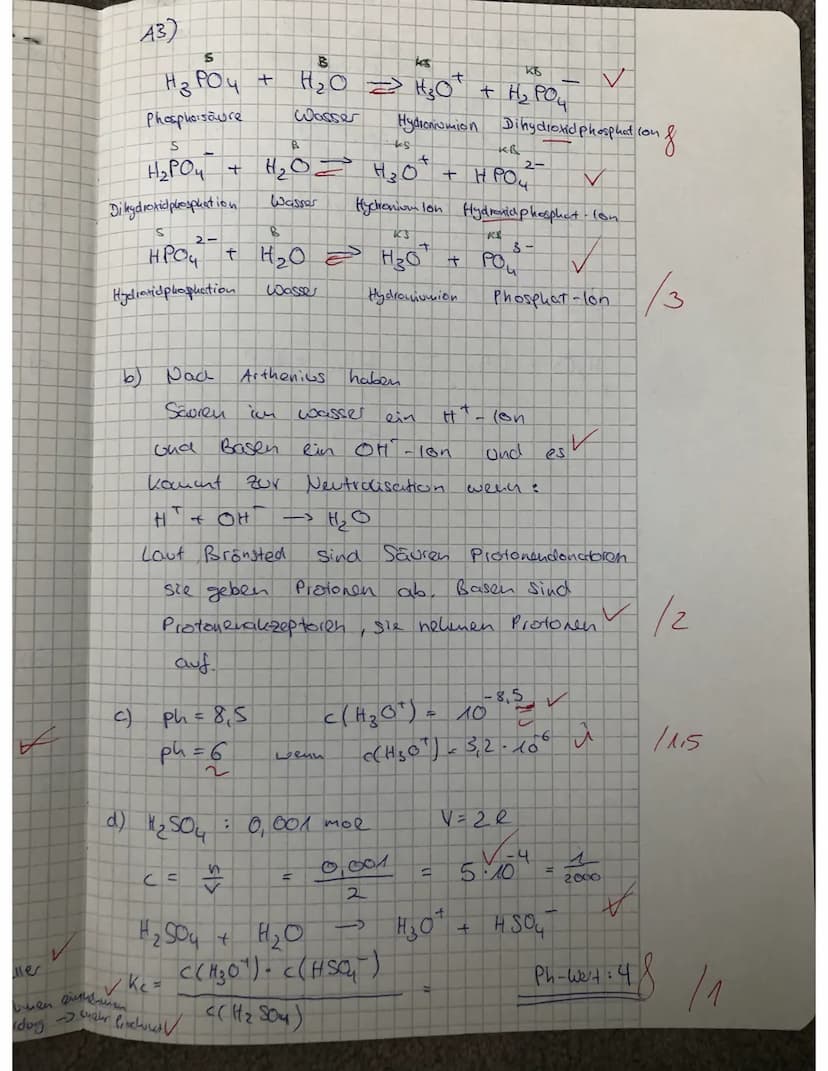 A3)
S B KS KB
H₃PO₄ + H₂O ⇌ H₃O⁺ + H₂PO₄⁻ ✓
Phosphorsäure Wasser Hydroniumion Dihydroxidphosphation
S B KS KB
H₂PO₄⁻ + H₂O ⇌ H₃O⁺ + HPO₄²⁻ ✓
Dihydroxidphosphation Wasser Hydronium Ion Hydroxidphosphat-Ion
S B KS KB
HPO₄²⁻ + H₂O ⇌ H₃O⁺ + PO₄³⁻ ✓
Hydroxidphosphation Wasser Hydroniumion Phosphat-Ion /3
b) Nach Arthenius haben
Säuren im wasser ein H⁺-Ion
und Basen ein OH⁻-Ion und es ✓
kommt zur Neutralisation wenn:
H⁺ + OH⁻ → H₂O
Laut Brönsted sind Säuren Protonendonatoren
sie geben Protonen ab. Basen sind
Protonenakzeptoren, sie nehmen Protonen ✓ /2
auf.
c) ph = 8,5 c(H₃O⁺) = 10⁻⁸,⁵ ✓
ph = 6 wenn c(H₃O⁺) = 3,2 · 10⁻⁶ /1,5
d) H₂SO₄ : 0,001 mol V = 2 l
c = n/V = 0,001/2 = 5·10⁻⁴ = 1/2000 ✓
H₂SO₄ + H₂O → H₃O⁺ + HSO₄⁻
✓ Kc = c(H₃O⁺) · c(HSO₄⁻) / c(H₂SO₄) = Ph-Wert: 4 /1